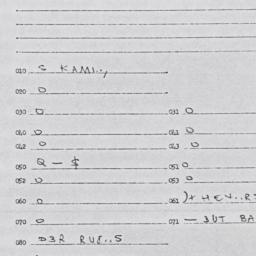 010 S KAMI..,
020 O
030 O 031 O
040 O 041 O
042 O 043 O
050 Q - $ 051 O
052 U 053 O
060 O 061 )+ HEY..R
070 O 071 - JUT BA
080 D3R RUE..S